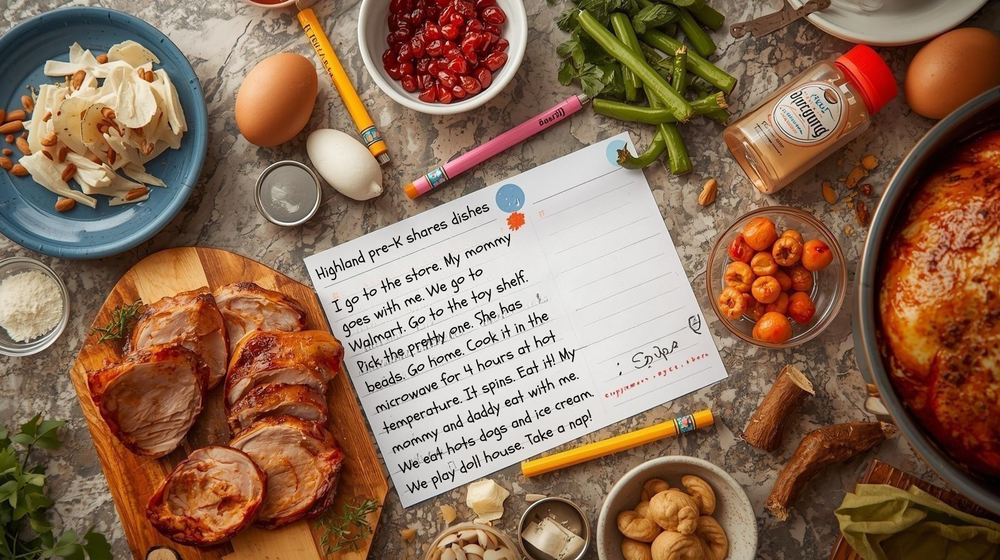 Highland pre-K shares dishes
I go to the store. My mommy
goes with me. We go to
Walmart. Go to the toy shelf.
Pick the pretty one. She has
beads. Go home. Cook it in the
microwave for 4 hours at hot
temperature. It spins. Eat it! My
mommy and daddy eat with me.
We eat hots dogs and ice cream.
We play doll house. Take a nap!